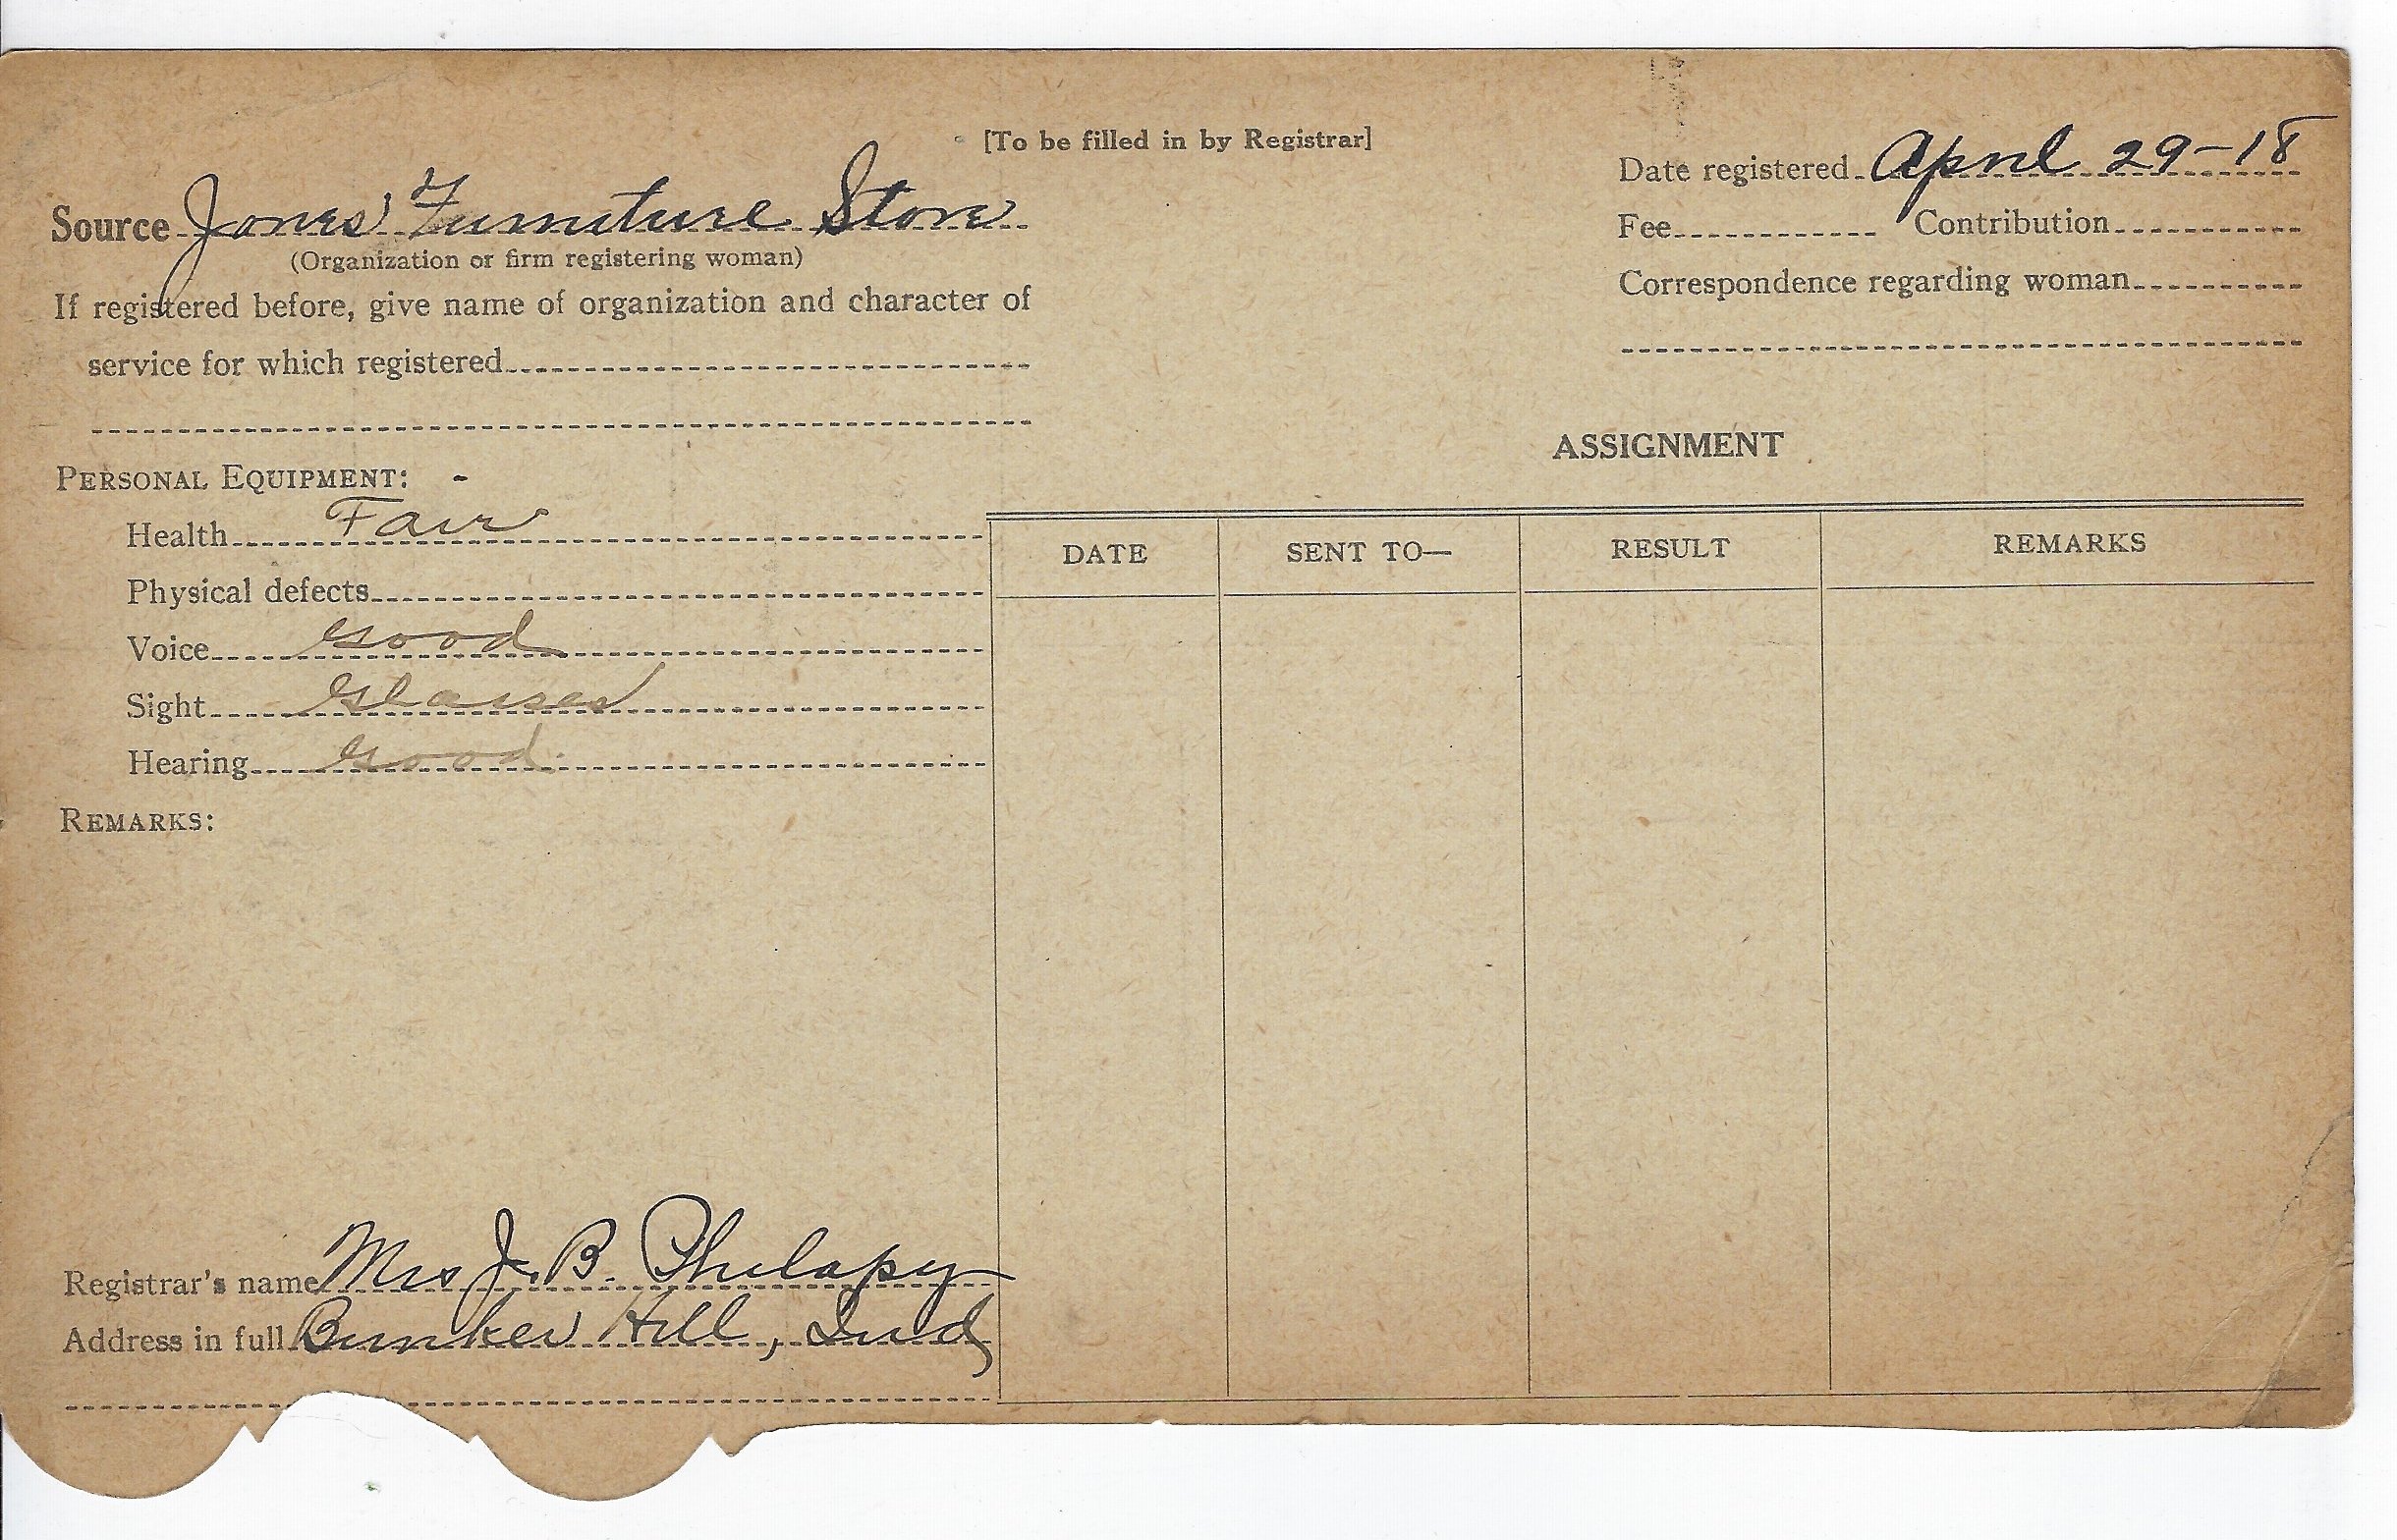 [To be filled in by Registrar]
Date registered April 29-18
Source Jones' Furniture Store
(Organization or firm registering woman)
Fee Contribution
If registered before, give name of organization and character of
service for which registered
Correspondence regarding woman
ASSIGNMENT
PERSONAL EQUIPMENT: -
Health Fair
Physical defects
Voice Good
Sight Glasses
Hearing Good
REMARKS:
DATE SENT TO— RESULT REMARKS
Registrar's name Mrs J. B. Philapy
Address in full Bunker Hill, Ind